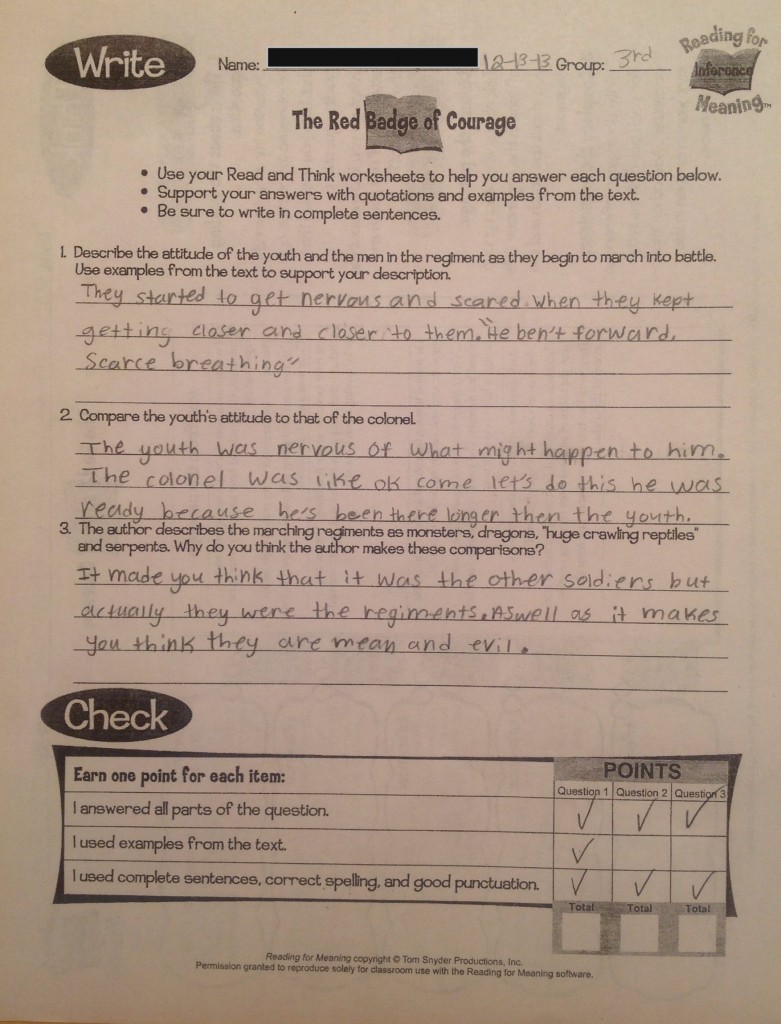 Write
Name: 12-13-13 Group: 3rd
Reading for
Inference
Meaning™
The Red Badge of Courage
• Use your Read and Think worksheets to help you answer each question below.
• Support your answers with quotations and examples from the text.
• Be sure to write in complete sentences.
1. Describe the attitude of the youth and the men in the regiment as they begin to march into battle.
Use examples from the text to support your description.
They started to get nervous and scared. When they kept
getting closer and closer to them. "He ben't forward.
Scarce breathing"
2. Compare the youth's attitude to that of the colonel.
The youth was nervous of what might happen to him.
The colonel was like ok come let's do this he was
ready because he's been there longer then the youth.
3. The author describes the marching regiments as monsters, dragons, "huge crawling reptiles"
and serpents. Why do you think the author makes these comparisons?
It made you think that it was the other soldiers but
actually they were the regiments. Aswell as it makes
you think they are mean and evil.
Check
Earn one point for each item:
POINTS
Question 1 Question 2 Question 3
I answered all parts of the question. ✓ ✓ ✓
I used examples from the text. ✓
I used complete sentences, correct spelling, and good punctuation. ✓ ✓ ✓
Total Total Total
Reading for Meaning copyright © Tom Snyder Productions, Inc.
Permission granted to reproduce solely for classroom use with the Reading for Meaning software.